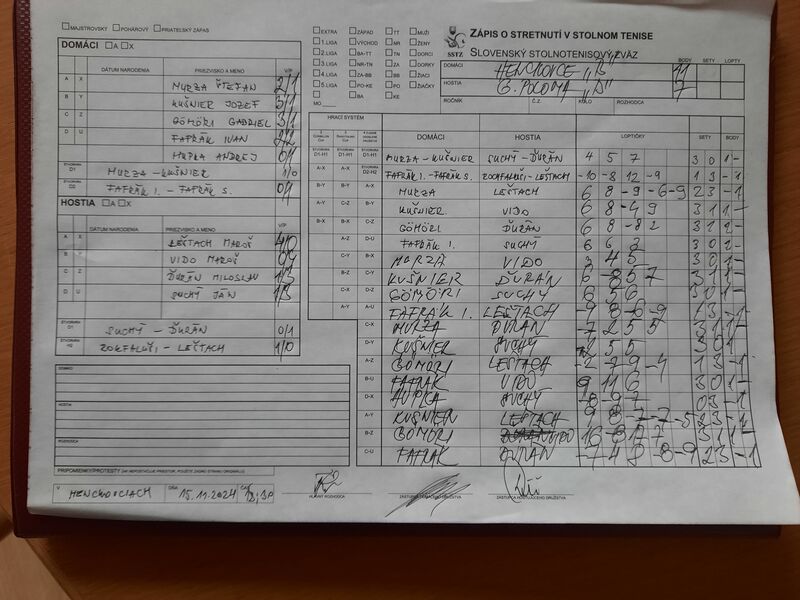 MAJSTROVSKÝ POHÁROVÝ PRIATEĽSKÝ ZÁPAS
DOMÁCI A X
DÁTUM NARODENIA PRIEZVISKO A MENO V/P
A X MURZA ŠTEFAN 2/1
B Y KUŠNIER JOZEF 3/1
C Z GÖMÖRI GABRIEL 3/1
D U FAFRÁK IVAN 2/2
HUPKA ANDREJ 0/1
ŠTVORHRA D1 MURZA - KUŠNIER 1/0
ŠTVORHRA D2 FAFRÁK I. - FAFRÁK S. 0/1
HOSTIA A X
DÁTUM NARODENIA PRIEZVISKO A MENO V/P
A X LEŠTACH MAROŠ 4/0
B Y VIDO MAROŠ 0/4
C Z ĎURÁN MILOSLAV 1/3
D U SUCHÝ JÁN 1/3
ŠTVORHRA SUCHÝ - ĎURÁN 0/1
ŠTVORHRA H2 ZOKFALUŠI - LEŠTACH 1/0
DOMÁCI
HOSTIA
ROZHODCA
PRIPOMIENKY/PROTESTY
EXTRA ZÁPAD TT MUŽI
1. LIGA VÝCHOD NR ŽENY
2. LIGA BA-TT TN DORCI
3. LIGA NR-TN ZA DORKY
4. LIGA ZA-BB BB ŽIACI
5. LIGA PO-KE PO ŽIAČKY
BA KE
MO
SSTZ
ZÁPIS O STRETNUTÍ V STOLNOM TENISE
SLOVENSKÝ STOLNOTENISOVÝ ZVÄZ
BODY SETY LOPTY
DOMÁCI HENCKOVCE „B" 11
HOSTIA G. POLOMA 7
ROČNÍK Č.Z. KOLO ROZHODCA
HRACÍ SYSTÉM
DOMÁCI HOSTIA LOPTIČKY SETY BODY
D1-H1 D1-H1 D1-H1 MURZA - KUŠNIER SUCHÝ - ĎURÁN 4 5 7 3 0 1 -
A-X A-X D2-H2 FAFRÁK I. - FAFRÁK S. ZOKFALUŠI - LEŠTACH -10 -8 12 -9 1 3 - 1
B-Y B-Y A-X MURZA LEŠTACH 6 8 -9 -6 -9 2 3 - 1
A-Y C-Z B-Y KUŠNIER VIDO 6 8 -4 9 3 1 1 -
B-X B-X C-Z GÖMÖRI ĎURÁN
A-Z D-U FAFRÁK I. SUCHÝ
C-Y B-X MURZA VIDO 3 4 5 3 0 1 -
B-Z C-Y KUŠNIER ĎURÁN 6 -8 5 7 3 1 1 -
C-X D-Z GÖMÖRI SUCHÝ 6 5 6 3 0 1 -
A-Y A-U FAFRÁK I. LEŠTACH -9 8 -6 -9 1 3 - 1
C-X MURZA ĎURÁN -7 2 5 5 3 1 1 -
D-Y KUŠNIER SUCHÝ
A-Z GÖMÖRI LEŠTACH -2 -7 9 -4 1 3 - 1
B-U FAFRÁK VIDO 9 11 6 3 0 1 -
D-X HUPKA SUCHÝ -8 -9 -7 0 3 - 1
A-Y KUŠNIER LEŠTACH 9 8 -7 -7 -5 2 3 - 1
B-Z GÖMÖRI VIDO 3 1 1 -
C-U FAFRÁK ĎURÁN -7 4 8 -8 -9 2 3 - 1
V HENCKOVCIACH DŇA 15.11.2024 ČAS
HLAVNÝ ROZHODCA ZÁSTUPCA DOMÁCEHO DRUŽSTVA ZÁSTUPCA HOSŤUJÚCEHO DRUŽSTVA